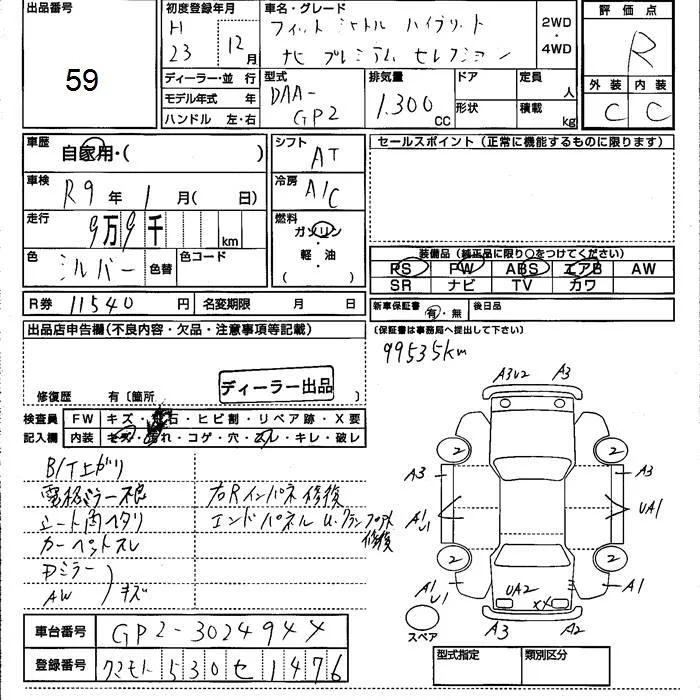 出品番号
59
初度登録年月
H
23 12月
車名・グレード
フィット シャトル ハイブリッド
ナビ プレミアム セレクション
2WD
・
4WD
評価点
R
外装 内装
C C
ディーラー・並 行
モデル年式 年
ハンドル 左・右
型式
DAA-
GP2
排気量
1.300
cc
ドア
形状
定員
人
積載
kg
車歴
自家用・( )
車検
R9 年 1 月( 日)
走行
9万9千 km
色
シルバー
色替
色コード
R券 11540 円
名変期限 月 日
シフト
AT
冷房
A/C
燃料
ガソリン
軽・油
( )
セールスポイント(正常に機能するものに限ります)
装備品(純正品に限り○をつけてください)
PS PW ABS エアB AW
SR ナビ TV カワ
新車保証書 有・無 後日品
(保証書は事務局へ提出して下さい)
99535km
出品店申告欄(不良内容・欠品・注意事項等記載)
ディーラー出品
修復歴 有〔箇所 〕
検査員
記入欄
FW キズ・ 石・ヒビ割・リペア跡・X要
内装 キズ・ れ・コゲ・穴・スレ・キレ・破レ
B/T上がり
電格ミラー不良
シート内ヘタリ
カーペットスレ
Dミラー
AW キズ
右Rインパネ修復
エンドパネル
修復
A3U2 A3
2 2
A3 A3
A1
U1
UA1
2 2
A1
U1
A1
UA2
XX
A3 A2
スペア
車台番号 GP2-3024944
登録番号 クマモト530セ1476
型式指定 類別区分